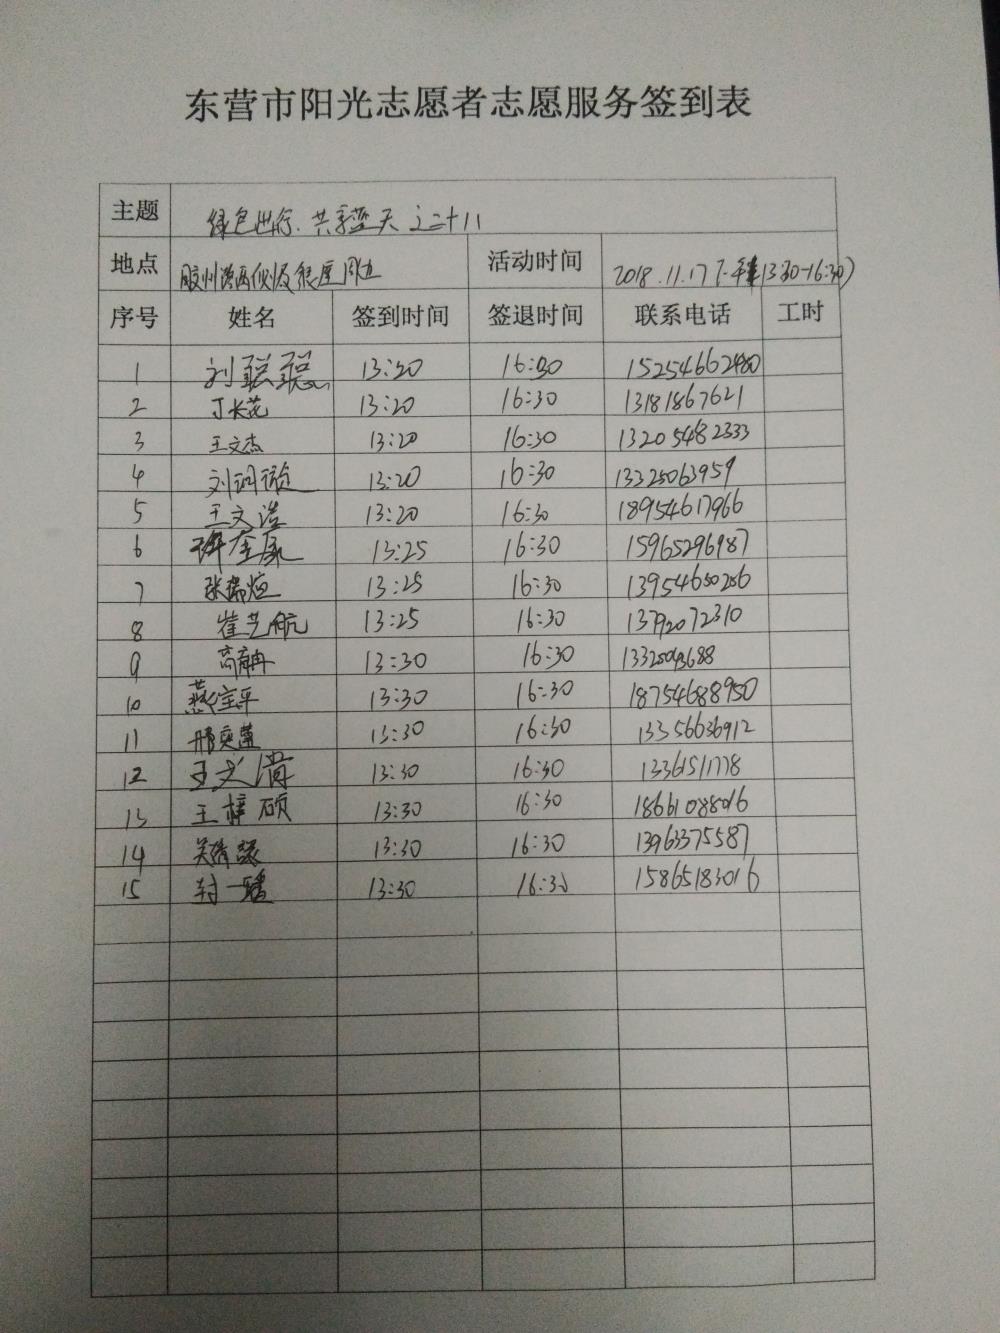 东营市阳光志愿者志愿服务签到表
主题 绿色出行.共享蓝天之二十八
地点 胶州路 周边 活动时间 2018.11.17(下午13:30-16:30)
序号 姓名 签到时间 签退时间 联系电话 工时
1 刘聪聪 13:20 16:30 15254662480
2 丁长花 13:20 16:30 13181867621
3 王文杰 13:20 16:30 13205482333
4 刘 13:20 16:30 13325063959
5 王文浩 13:20 16:30 18954617966
6 13:25 16:30 15965296987
7 张瑞煊 13:25 16:30 13954650286
8 崔艺航 13:25 16:30 13792072310
9 高 13:30 16:30
10 燕宝平 13:30 16:30 18754688950
11 邢奕萱 13:30 16:30 13356636912
12 王文 13:30 16:30 13361511778
13 王梓硕 13:30 16:30 18661088016
14 吴 13:30 16:30 13963375587
15 封一 13:30 16:30 15865183016